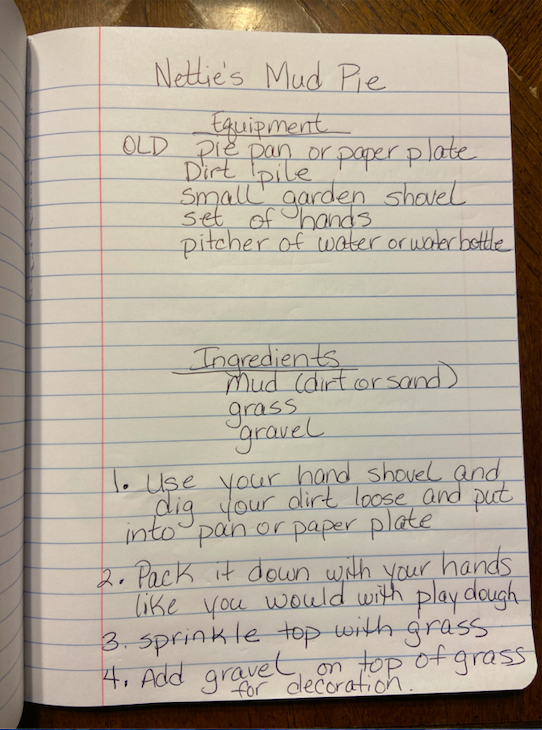 Nettie's Mud Pie
Equipment
OLD pie pan or paper plate
Dirt pile
small garden shovel
set of hands
pitcher of water or water bottle
Ingredients
mud (dirt or sand)
grass
gravel
1. Use your hand shovel and
dig your dirt loose and put
into pan or paper plate
2. Pack it down with your hands
like you would with play dough
3. sprinkle top with grass
4. Add gravel on top of grass
for decoration.